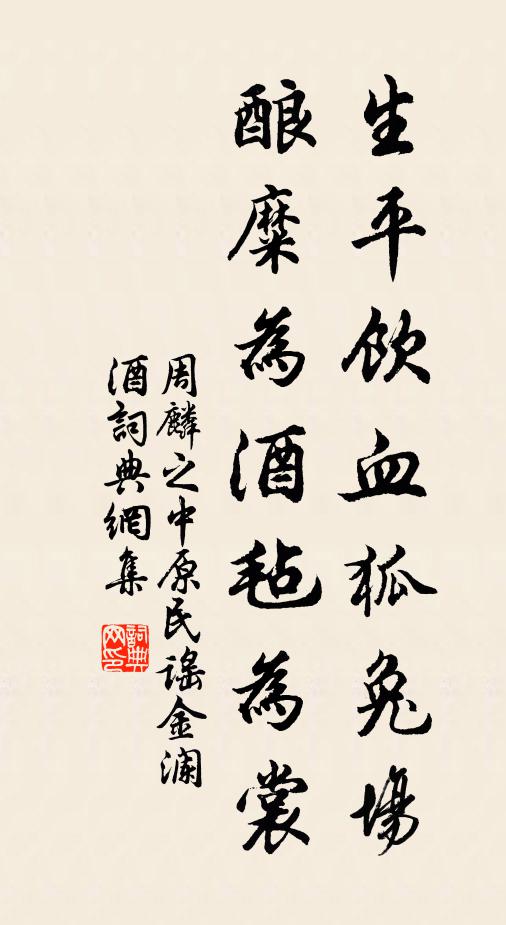 生平饮血狐兔場
酿糜為酒毡為裳
周麟之中原民谣金澜
酒詞典網集
詞典網印